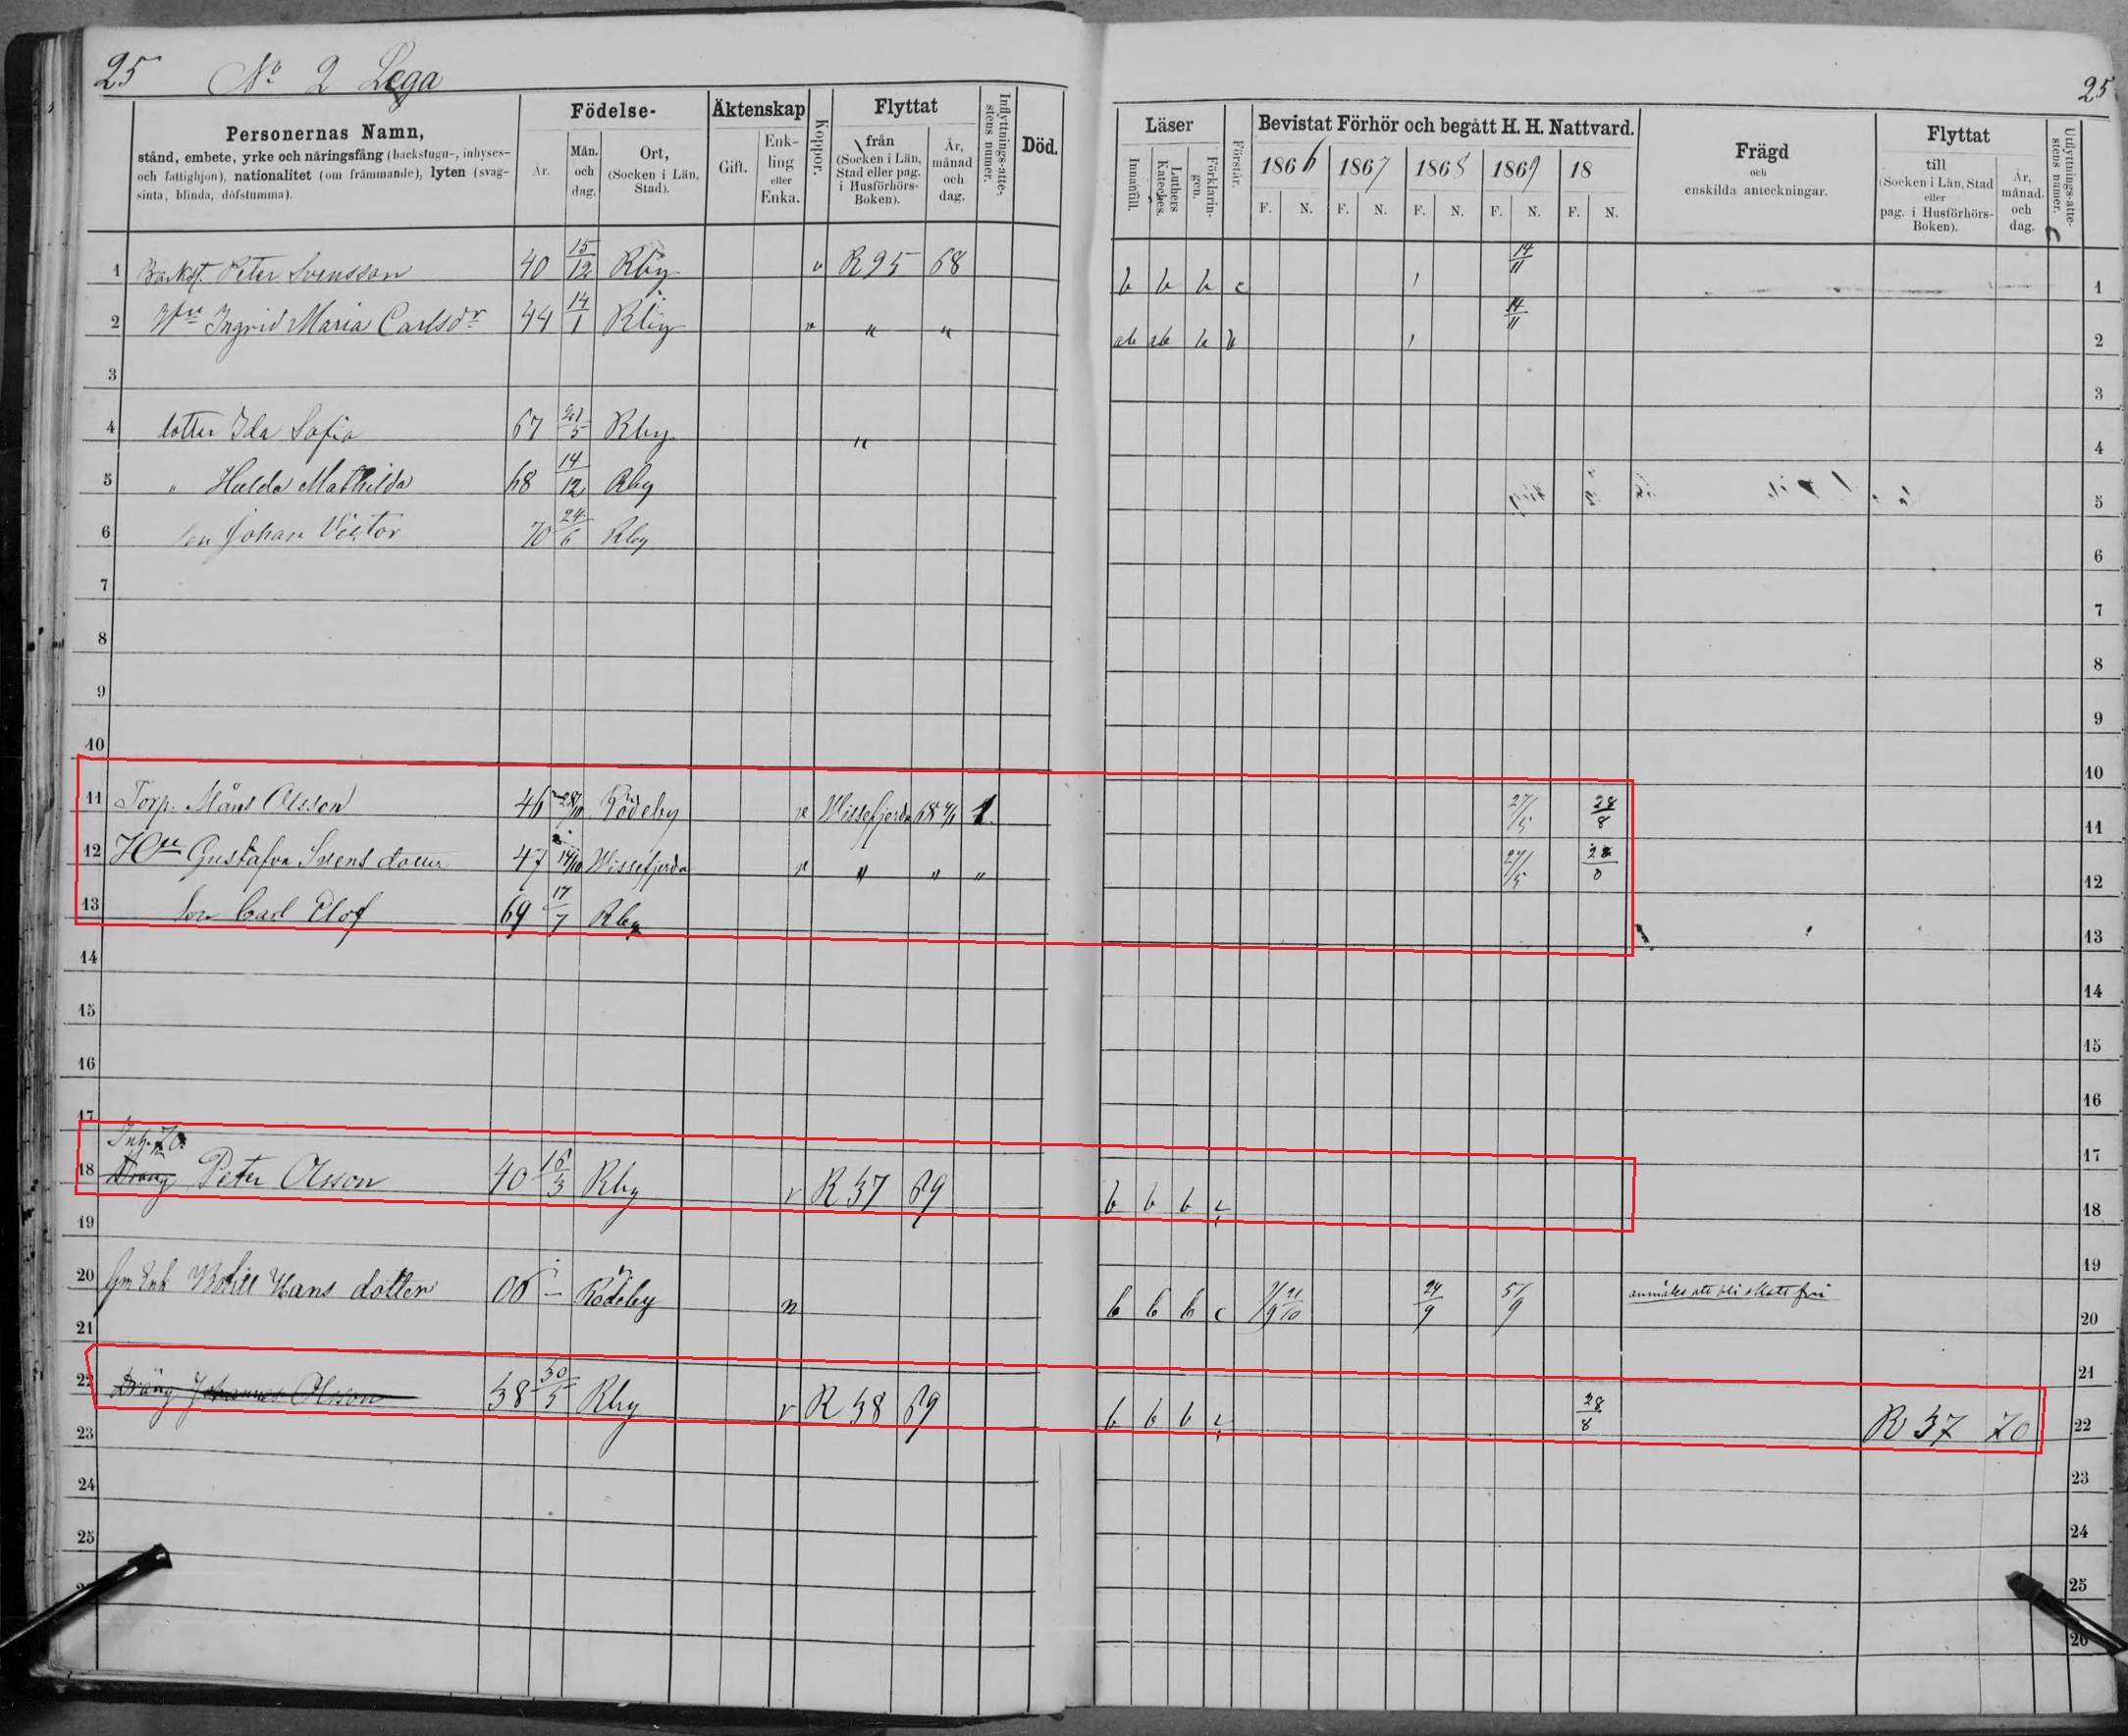 25 No 2 Lega
25
Personernas Namn,
stånd, embete, yrke och näringsfång (backstugu-, inhyses-
och fattighjon), nationalitet (om främmande), lyten (svag-
sinta, blinda, döfstumma).
Födelse-
År.
Mån. och dag.
Ort,
(Socken i Län, Stad).
Äktenskap
Gift.
Enk-
ling
eller
Enka.
Koppor.
Flyttat
från
(Socken i Län,
Stad eller pag.
i Husförhörs-
Boken).
År,
månad
och
dag.
Inflyttnings-atte-
stens numer.
Död.
Läser
Innantill.
Luthers
Kateches.
Förklarin-
gen.
Förstår.
Bevistat Förhör och begått H. H. Nattvard.
1866 1867 1868 1869 18
F. N. F. N. F. N. F. N. F. N.
Frägd
och
enskilda anteckningar.
Flyttat
till
(Socken i Län, Stad
eller
pag. i Husförhörs-
Boken).
År,
månad.
och
dag.
Utflyttnings-atte-
stens numer.
1 Backst. Peter Svensson 40 15/12 Rby v R95 68 b b b c 14/11 1
2 Hu Ingrid Maria Carlsdr 44 14/1 Rby " " " ab ab b b 14/11 2
3 3
4 dotter Ida Sofia 67 5 Rby " 4
5 " Hulda Mathilda 68 14/12 Rby 5
6 son Johan Victor 70 24/6 Rby 6
7 7
8 8
9 9
10 10
11 Torp. Måns Olsson 46 28/10 Rödeby v Wissefjerda 68 1. 27/5 28/8 11
12 Hu Gustafva Svens dotter 47 14/10 Wissefjerda v " " " 27/5 28/8 12
13 son Carl Elof 69 17/7 Rby 13
14 14
15 15
16 16
17 17
Inh. 70.
18 Dräng Peter Olsson 40 16/3 Rby v R 37 69 b b b c 18
19 19
20 Gm Enk Botill Hans dotter 00 — Rödeby n b b b c 24/9 5/9 anmäles att bli skatt fri 20
21 21
22 Dräng Johannes Olsson 38 30/5 Rby v R 38 69 b b b c 28/8 R 37 70 22
23 23
24 24
25 25
26